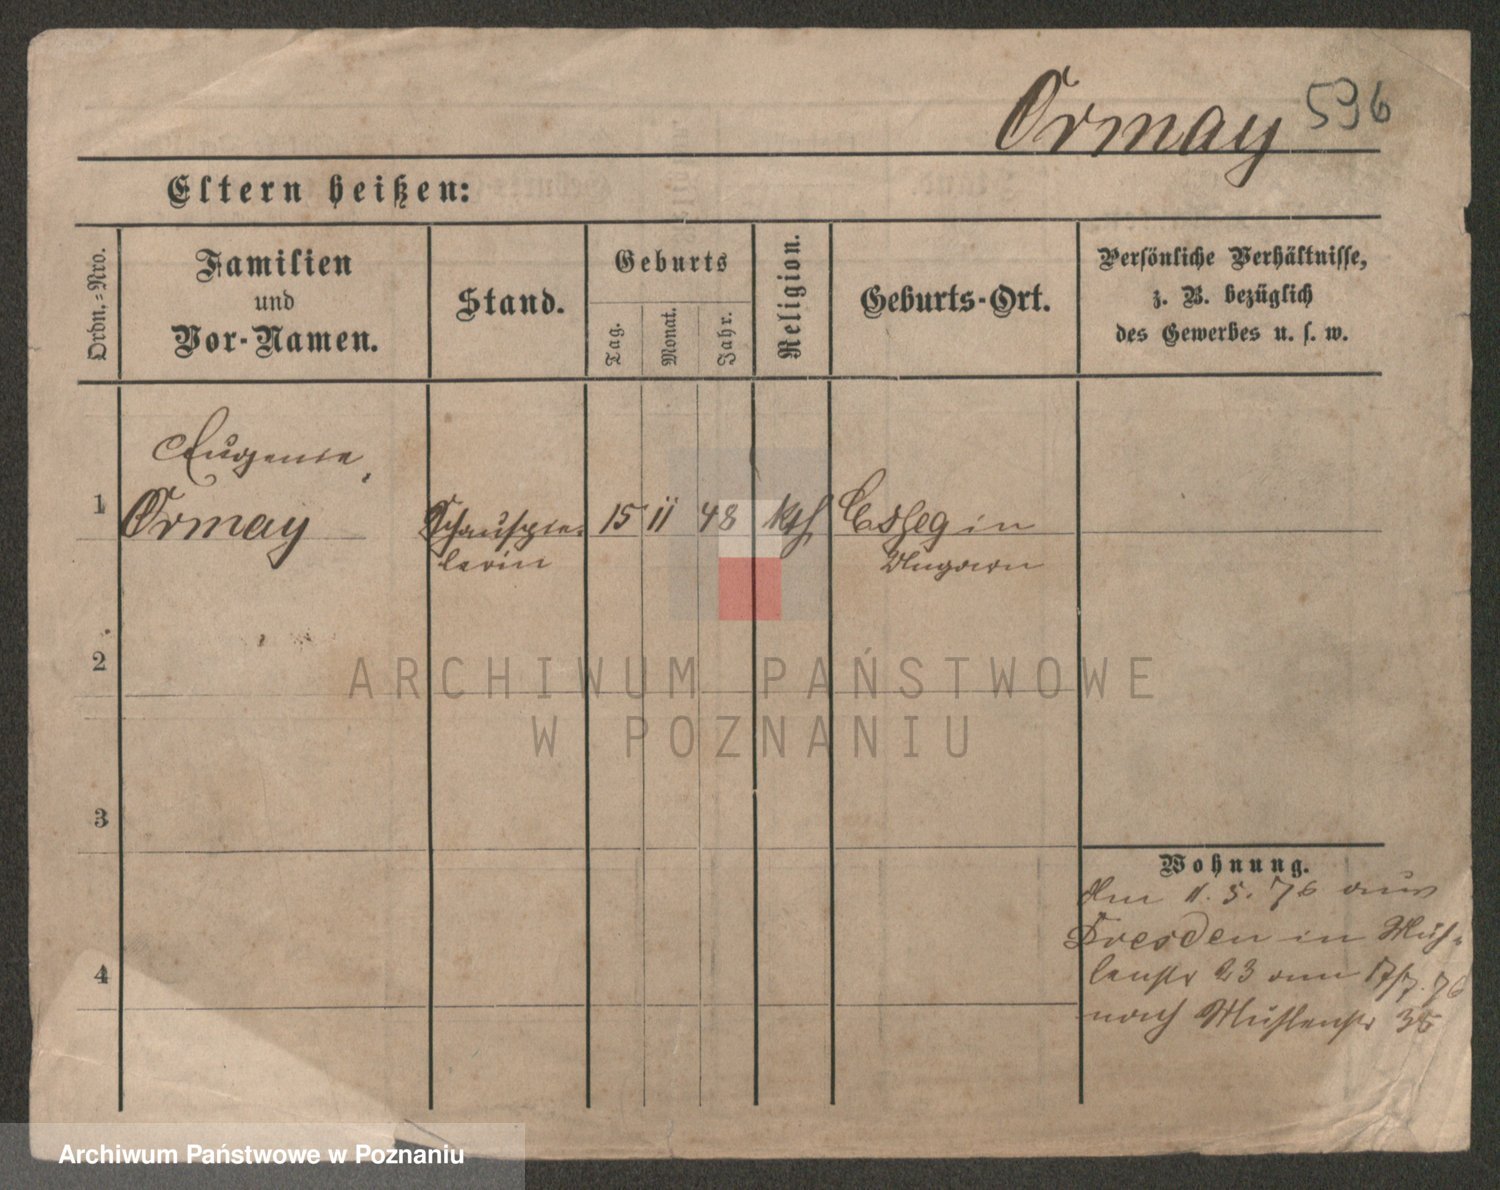 Ormay 596
Eltern heißen:
Ordn.=Nro.
Familien
und
Vor-Namen.
Stand.
Geburts
Tag.
Monat.
Jahr.
Religion.
Geburts-Ort.
Persönliche Verhältnisse,
z. B. bezüglich
des Gewerbes u. s. w.
Eugenie,
1 Ormay Schauspie- 15 11 48 kth in
lerin Ungarn
2
3
4
Wohnung.
Am 11. 5. 76 aus
Dresden in Müh-
lenstr 23 am 17/7. 76
nach Mühlenstr 35
ARCHIWUM PAŃSTWOWE
W POZNANIU
Archiwum Państwowe w Poznaniu